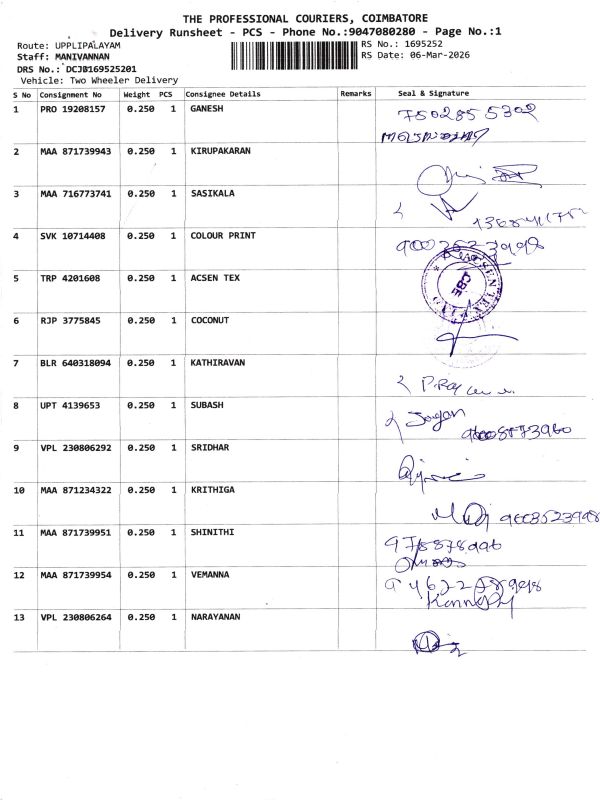 THE PROFESSIONAL COURIERS, COIMBATORE
Delivery Runsheet - PCS - Phone No.:9047080280 - Page No.:1
Route: UPPLIPALAYAM
RS No.: 1695252
Staff: MANIVANNAN
RS Date: 06-Mar-2026
DRS No.: DCJB169525201
Vehicle: Two Wheeler Delivery
S No Consignment No Weight PCS Consignee Details Remarks Seal & Signature
1 PRO 19208157 0.250 1 GANESH 7502855302
2 MAA 871739943 0.250 1 KIRUPAKARAN
3 MAA 716773741 0.250 1 SASIKALA
4 SVK 10714408 0.250 1 COLOUR PRINT
5 TRP 4201608 0.250 1 ACSEN TEX CBE
6 RJP 3775845 0.250 1 COCONUT
7 BLR 640318094 0.250 1 KATHIRAVAN
8 UPT 4139653 0.250 1 SUBASH
9 VPL 230806292 0.250 1 SRIDHAR
10 MAA 871234322 0.250 1 KRITHIGA
11 MAA 871739951 0.250 1 SHINITHI
12 MAA 871739954 0.250 1 VEMANNA
13 VPL 230806264 0.250 1 NARAYANAN